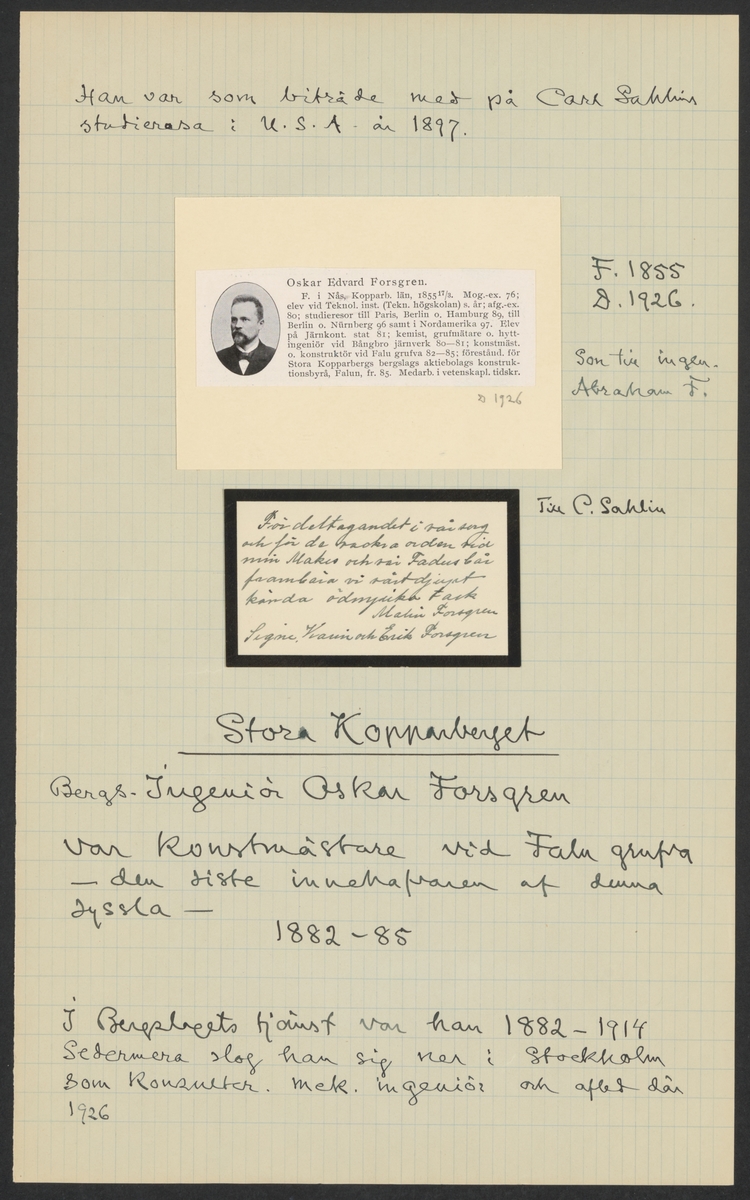 Han var som biträde med på Carl Sahlins
studieresa i U.S.A. år 1897.
Oskar Edvard Forsgren.
F. i Nås, Kopparb. län, 1855 17/2. Mog.-ex. 76;
elev vid Teknol. inst. (Tekn. högskolan) s. år; afg.-ex.
80; studieresor till Paris, Berlin o. Hamburg 89, till
Berlin o. Nürnberg 96 samt i Nordamerika 97. Elev
på Järnkont. stat 81; kemist, grufmätare o. hytt-
ingeniör vid Bångbro järnverk 80—81; konstmäst.
o. konstruktör vid Falu grufva 82—85; förestånd. för
Stora Kopparbergs bergslags aktiebolags konstruk-
tionsbyrå, Falun, fr. 85. Medarb. i vetenskapl. tidskr.
D 1926
F. 1855
D. 1926.
Son till ingen.
Abraham F.
Till C. Sahlin
För deltagandet i vår sorg
och för de vackra orden vid
min Makes och vår Faders bår
frambära vi vårt djupt
kända ödmjuka tack
Malin Forsgren
Signe, Karin och Erik Forsgren
Stora Kopparberget
Bergs-Ingeniör Oskar Forsgren
var konstmästare vid Falu grufva
— den siste innehafvaren af denna
syssla —
1882–85
I Bergslagets tjänst var han 1882–1914
Sedermera slog han sig ner i Stockholm
som konsulter. mek. ingeniör och afled där
1926